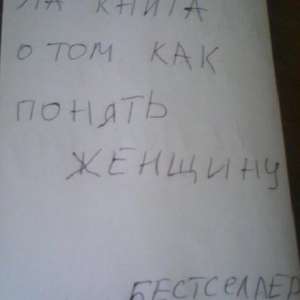 КНИГА
О ТОМ КАК
ПОНЯТЬ
ЖЕНЩИНУ
БЕСТСЕЛЛЕР